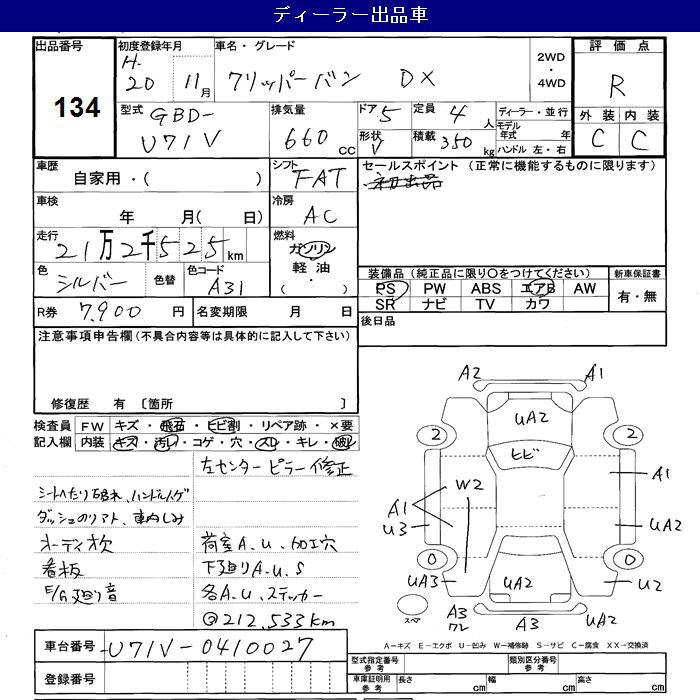 ディーラー出品車
出品番号 134
初度登録年月 H.20 11月
車名・グレード クリッパーバン DX
2WD・4WD
評価点 R
外装 内装
C C
型式 GBD-U71V
排気量 660cc
ドア 5 定員 4人
形状 V 積載 350kg
ディーラー・並行
モデル年式 年
ハンドル 左・右
車歴 自家用・( )
シフト FAT
セールスポイント (正常に機能するものに限ります)
初出品
車検 年 月( 日)
冷房 AC
走行 21万2千525km
燃料 ガソリン 軽油・( )
色 シルバー 色替 色コード A31
装備品(純正品に限り○をつけてください)
新車保証書 有・無
PS PW ABS エアB AW
SR ナビ TV カワ
R券 7,900円 名変期限 月 日
後日品
注意事項申告欄(不具合内容等は具体的に記入して下さい)
修復歴 有 〔箇所 〕
検査員記入欄
FW キズ・飛石・ヒビ割・リペア跡・×要
内装 キズ・汚レ・コゲ・穴・スレ・キレ・破レ
左センターピラー修正
シートへたり破れ、ハンドルハゲ
ダッシュのりアト、車内しみ
オーディオ欠
荷室A.U、加工穴
看板
下廻りA.U.S
E/G廻り音
各A.U、ステッカー
@212,533km
A2 A1
UA2
2 2
ヒビ
W2
A1
A1
U3
UA2
0 0
UA3
UA2
U2
スペア
A3 ワレ
A3
UA2
A=キズ E=エクボ U=凹み W=補修跡 S=サビ C=腐食 XX=交換済
車台番号 U71V-0410027
登録番号
型式指定番号 参考
類別区分番号 参考
車庫証明用 参考
長さ cm
幅 cm
高さ cm